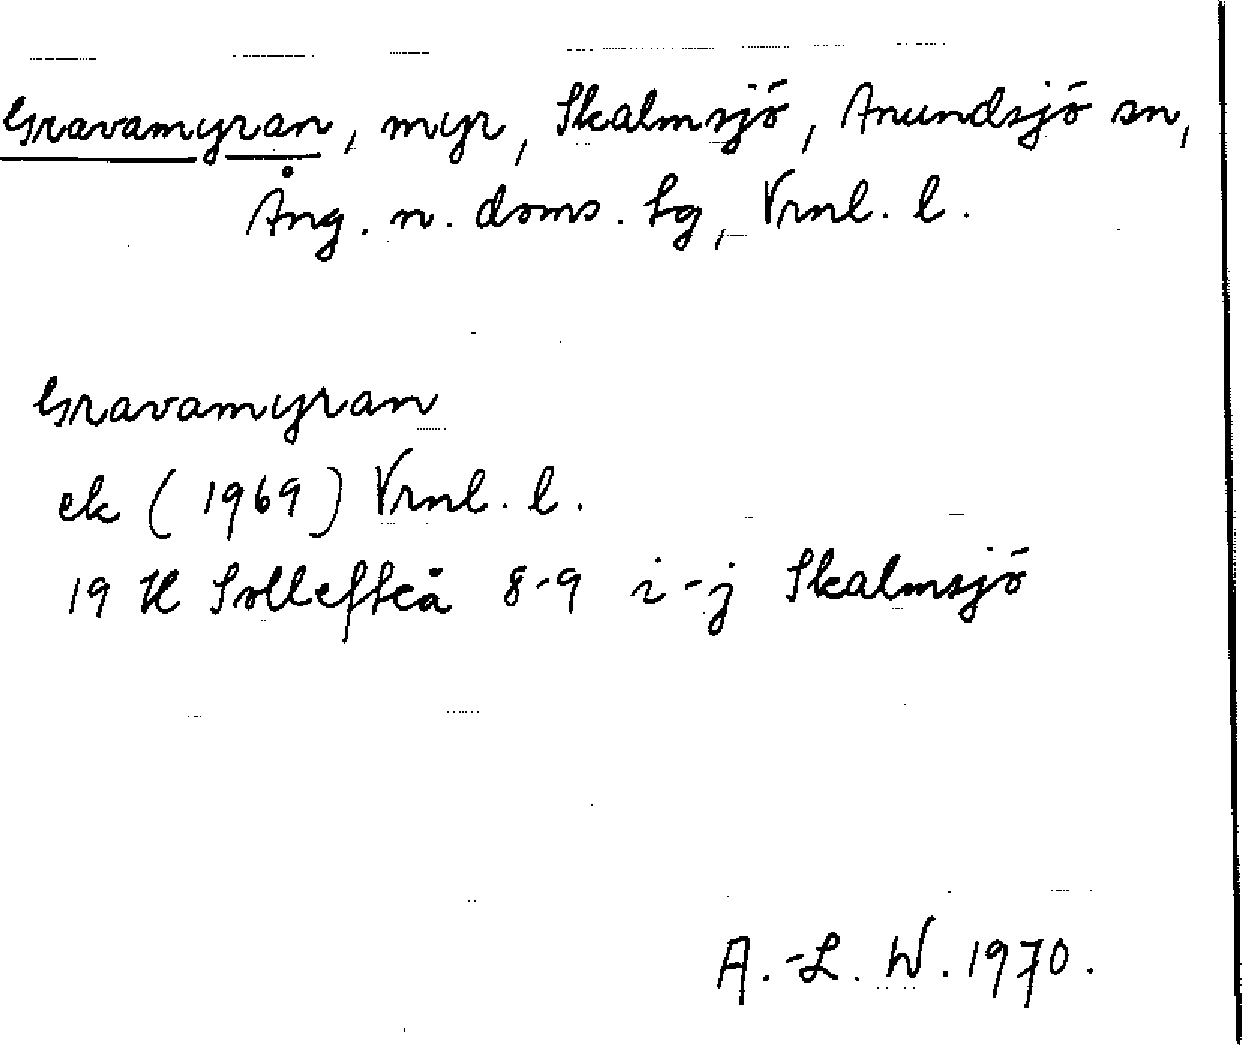 Gravamyran, myr, Skalmsjö, Anundsjö sn,
Ång. n. doms. hg, Vrnl. l.
Gravamyran
ek (1969) Vrnl. l.
19 H Sollefteå 8-9 i-j Skalmsjö
A.-L. W. 1970.